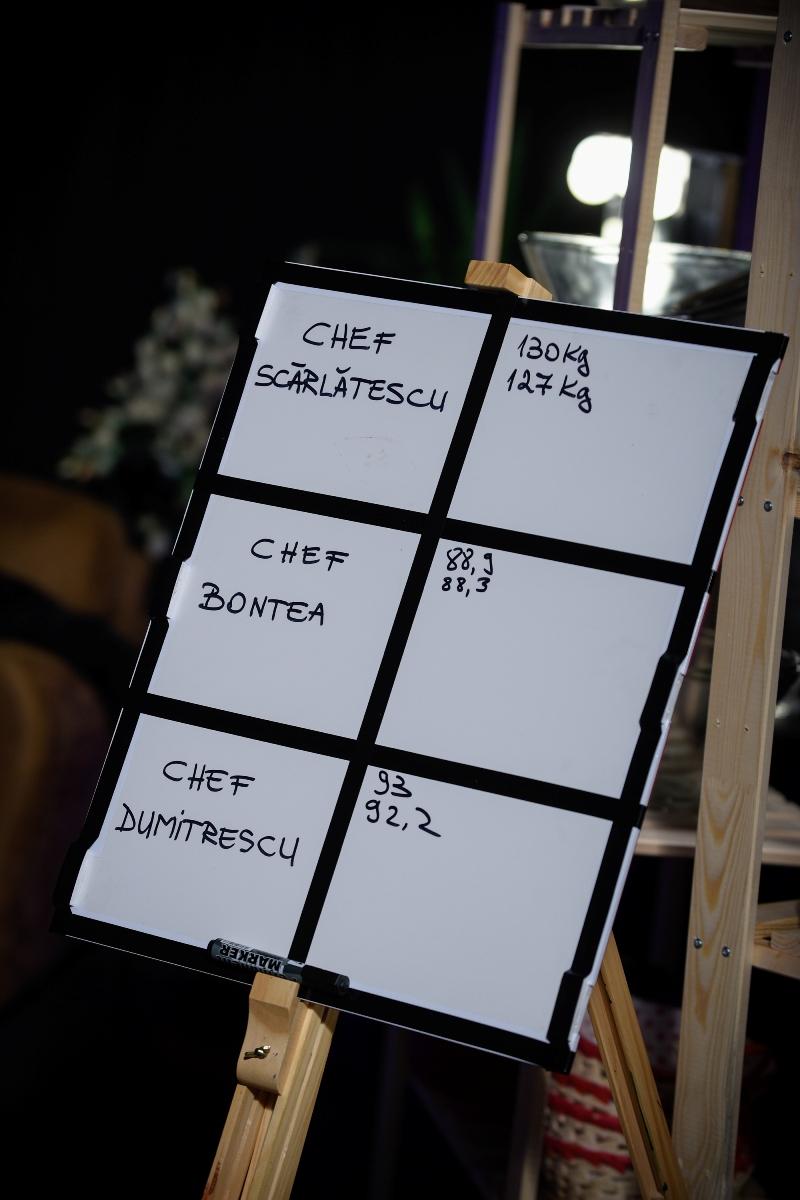 CHEF
SCĂRLĂTESCU
130Kg
127Kg
CHEF
BONTEA
88,9
88,3
CHEF
DUMiTRESCU
93
92,2
MARKER